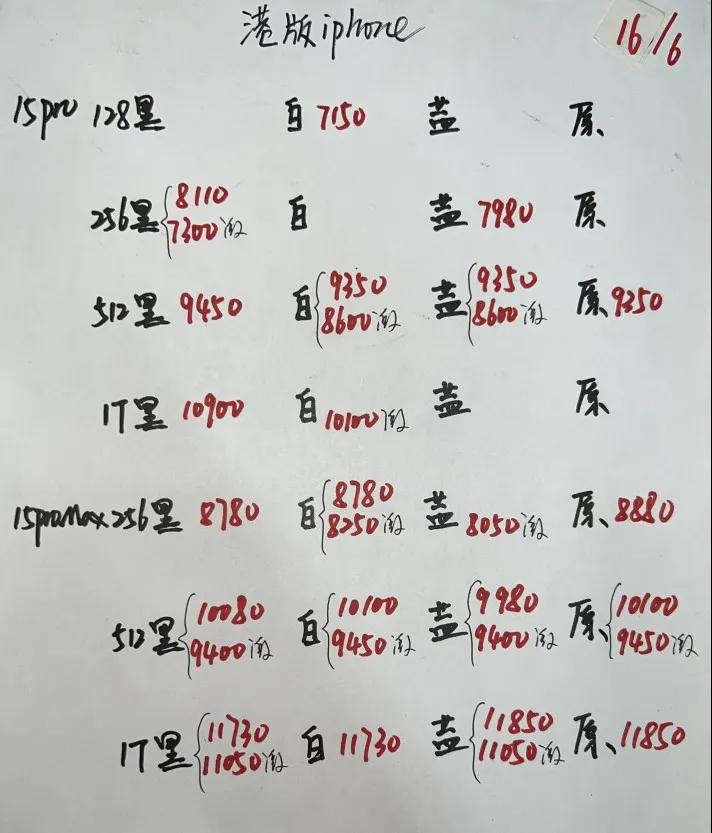 港版iphone 16/6
15pro 128黑 白 7150 盖 原、
256黑 {8110 白 盖 7980 原、
7300激
512黑 9450 白 {9350 盖 {9350 原、9350
8600激 8600激
1T黑 10900 白 10100激 盖 原、
15proMax 256黑 8780 白 {8780 盖 8050激 原、8880
8250激
512黑 {10080 白 {10100 盖 {9980 原、{10100
9400激 9450激 9400激 9450激
1T黑 {11730 白 11730 盖 {11850 原、11850
11050激 11050激